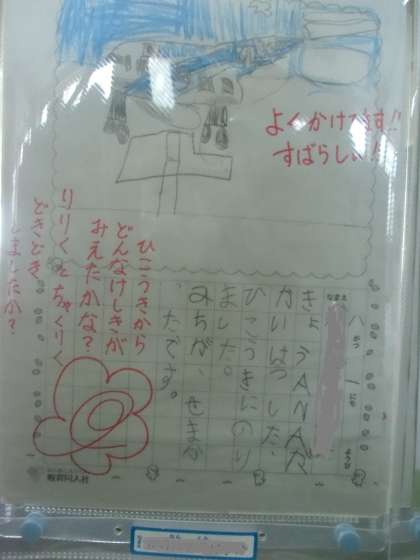 よくかけてます!!
すばらしい!!
八 がつ 一 にち ようび
なまえ
きょうANAが
かいはつした、
ひこうきにのり
ました。
みちが、せまか
ったです。
ひこうきから
どんなけしきが
みえたかな?
りりくとちゃくりく
どきどき
しましたか?
教育同人社
ねん くみ